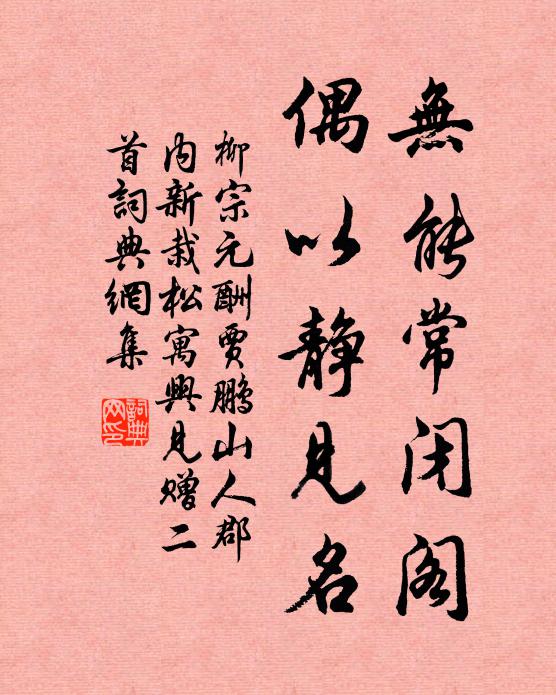 無能常閉閣
偶以靜見名
柳宗元酬賈鵬山人郡
內新栽松寓興見贈二
首詞典網集
詞典
网印